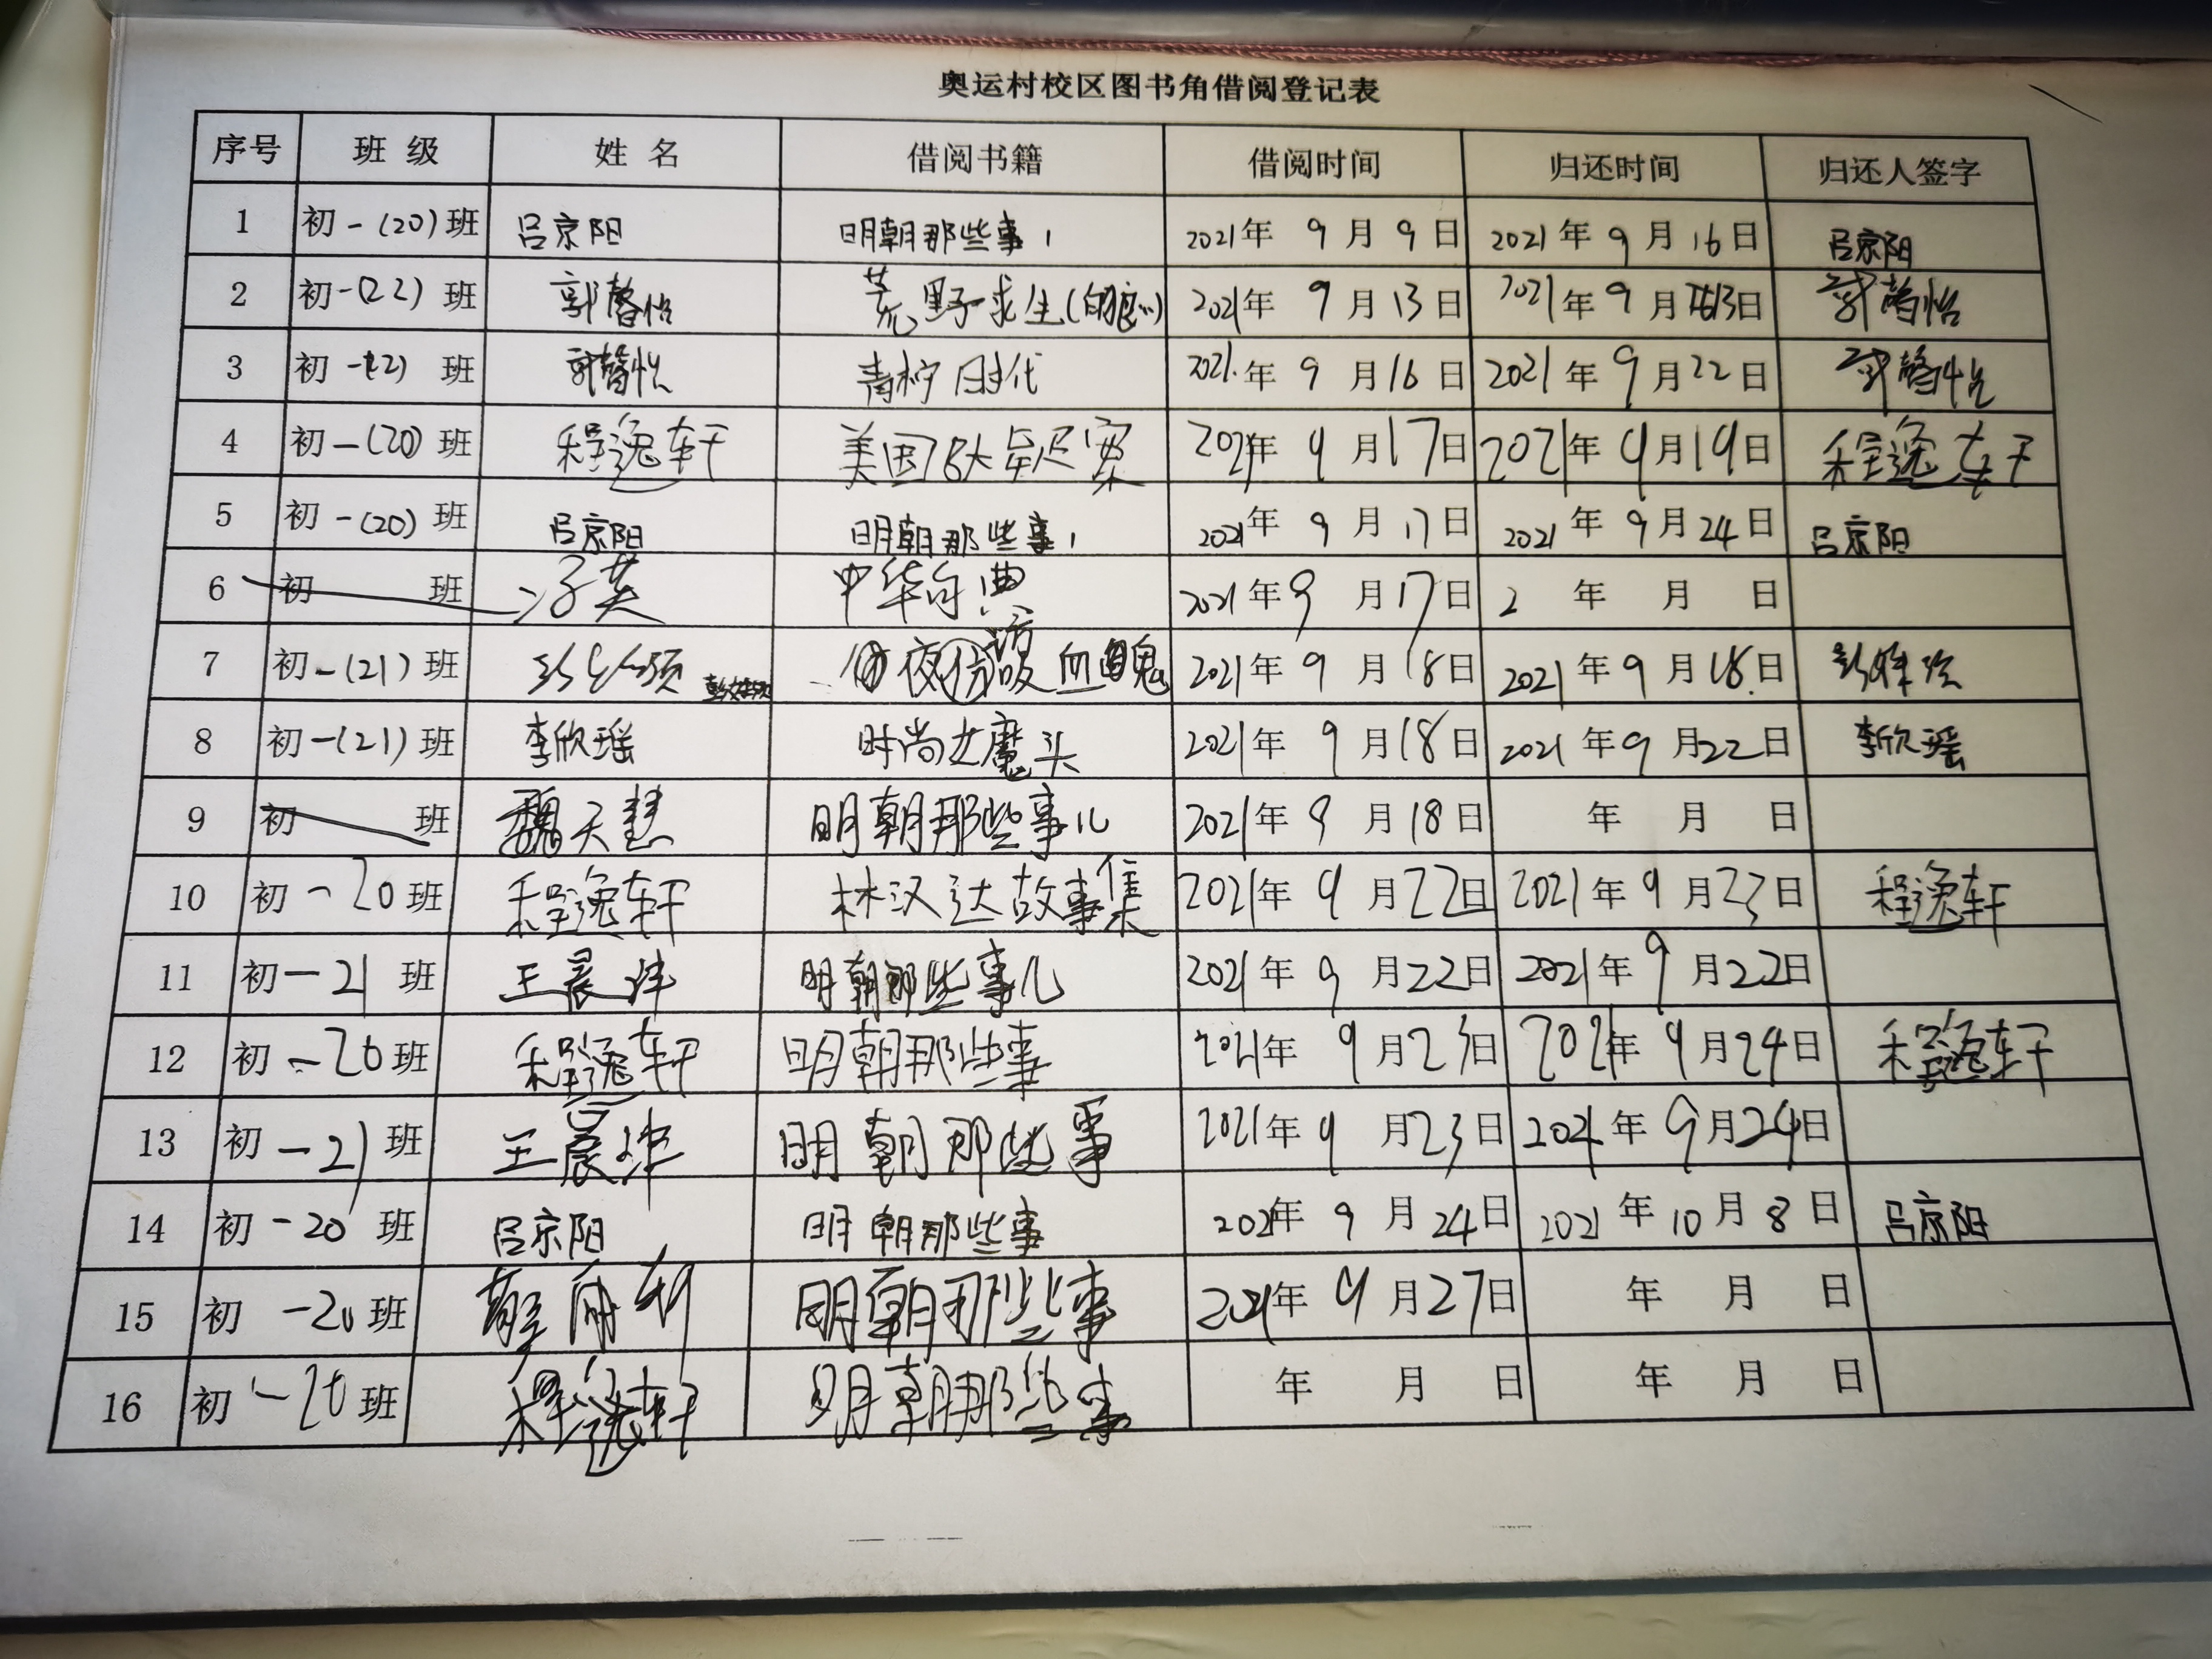 奥运村校区图书角借阅登记表
序号 班 级 姓 名 借阅书籍 借阅时间 归还时间 归还人签字
1 初一(20)班 吕京阳 明朝那些事1 2021年9月9日 2021年9月16日 吕京阳
2 初一(22)班 郭馨怡 荒野求生(白狼) 2021年9月13日 2021年9月日 郭馨怡
3 初一班 郭馨怡 青柠时代 2021.年9月16日 2021年9月22日 郭馨怡
4 初一(20)班 程逸轩 美国8大案 2021年9月17日 2021年9月19日 程逸轩
5 初一(20)班 吕京阳 明朝那些事1 2021年9月17日 2021年9月24日 吕京阳
6 初 班 子英 中华字典 2021年9月17日 2年 月 日
7 初一(21)班 夜访吸血鬼 2021年9月18日 2021年9月18日
8 初一(21)班 李欣瑶 时尚女魔头 2021年9月18日 2021年9月22日 李欣瑶
9 初 班 魏天慧 明朝那些事儿 2021年9月18日 年 月 日
10 初一20班 程逸轩 林汉达故事集 2021年9月22日 2021年9月23日 程逸轩
11 初一21班 王晨 明朝那些事儿 2021年9月22日 2021年9月22日
12 初一20班 程逸轩 明朝那些事 2021年9月23日 2021年9月24日 程逸轩
13 初一21班 王晨 明朝那些事 2021年9月23日 2021年9月24日
14 初一20班 吕京阳 明朝那些事 2021年9月24日 2021年10月8日 吕京阳
15 初一20班 明朝那些事 2021年9月27日 年 月 日
16 初一20班 程逸轩 明朝那些事 年 月 日 年 月 日